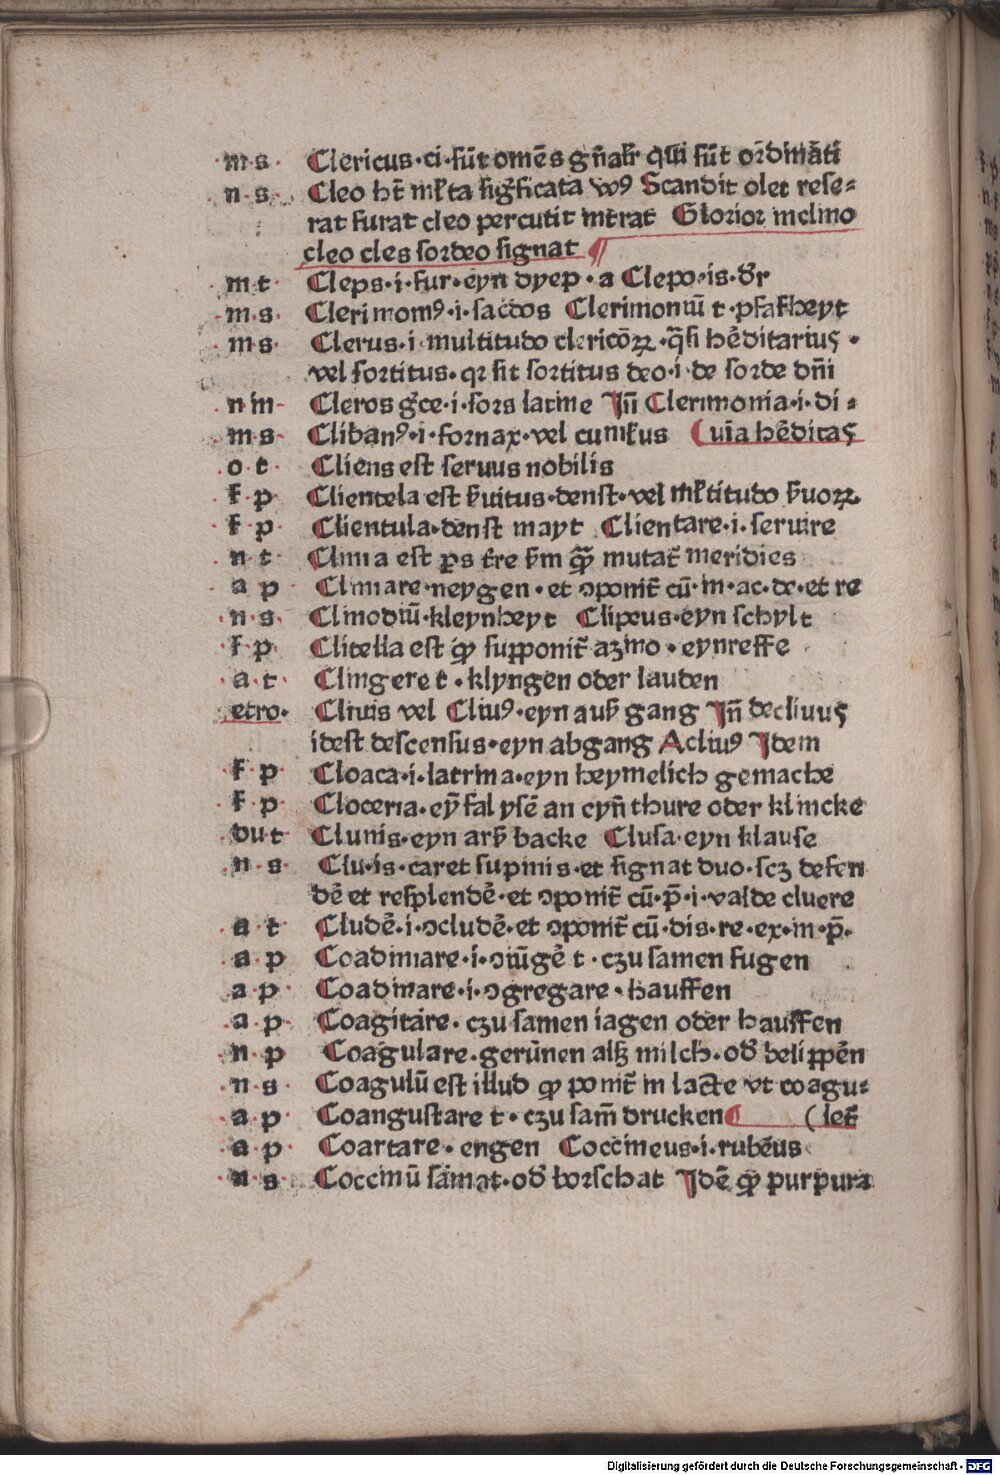 m s Clericus·ci·sūt omēs gn̄alr̄ qui sūt ordināti
n s Cleo hr̄ ml̄ta siḡficata vꝰ Scandit olet rese⸗
rat furat cleo percutit intrat̄ Glorior inclino
cleo cles sordeo signat ¶
m t Cleps·i·fur·eyn dyep·a Clepo·is·d̄r
m s Clerimomꝰ·i·sac̄dos Clerimoniū t·pfafheyt
m s Clerus·i·multitudo clericōꝝ·q̄si hēditarius·
vel sortitus·qr sit sortitus deo·i·de sorde dn̄i
n in Cleros ḡce·i·sors latine Jn̄ Clerimonia·i·di⸗
m s Clibanꝰ·i·fornax·vel cunil̄us (uīa hēditas
o t Cliens est seruus nobilis
f p Clientela est s̄uitus·denst·vel ml̄titudo s̄uoꝝ
f p Clientula·denst mayt Clientare·i·seruire
n t Clima est ꝑs t̄re s̄m quā mutat̄ meridies
a p Clinare·neygen·et ꝯponit̄ cū·in·ac·de·et re
n s Clinodiū·kleynheyt Clipeus·eyn schylt
f p Clitella est qꝫ supponit̄ azino·eynreffe
a t Clingere t·klyngen oder lauden
etro· Cliuis vel Cliuꝰ·eyn auf gang Jn̄ decliuus
idest descensus·eyn abgang Acliuꝰ Jdem
f p Cloaca·i·latrina·eyn heymelich gemache
f p Cloceria·ey̅ fal ysē an cyn̄ thure oder klincke
du t Clunis·eyn arß backe Clusa·eyn klause
n s Clu·is·caret supinis·et signat duo·scꝫ defen
dē et resplendē·et ꝯponit̄ cū·p̄·i·valde cluere
a t Cludē·i·ꝯcludē·et ꝯponit̄ cū·dis·re·ex·in·p̄·
a p Coadiniare·i·ꝯiūgē t·czu samen fugen
a p Coadinare·i·ꝯgregare·hauffen
a p Coagitare·czu samen iagen oder hauffen
n p Coagulare·gerūnen alß milch·od̄ belippēn
n s Coagulū est illud qꝫ ponit̄ in lacte vt coagu⸗
a p Coangustare t·czu sam̄ drucken¶ (let̄
a p Coartare·engen Coccineus·i·rubēus
n s Coccinū sāmat·od̄ borschat Jdē qꝫ purpura
Digitalisierung gefördert durch die Deutsche Forschungsgemeinschaft - DFG